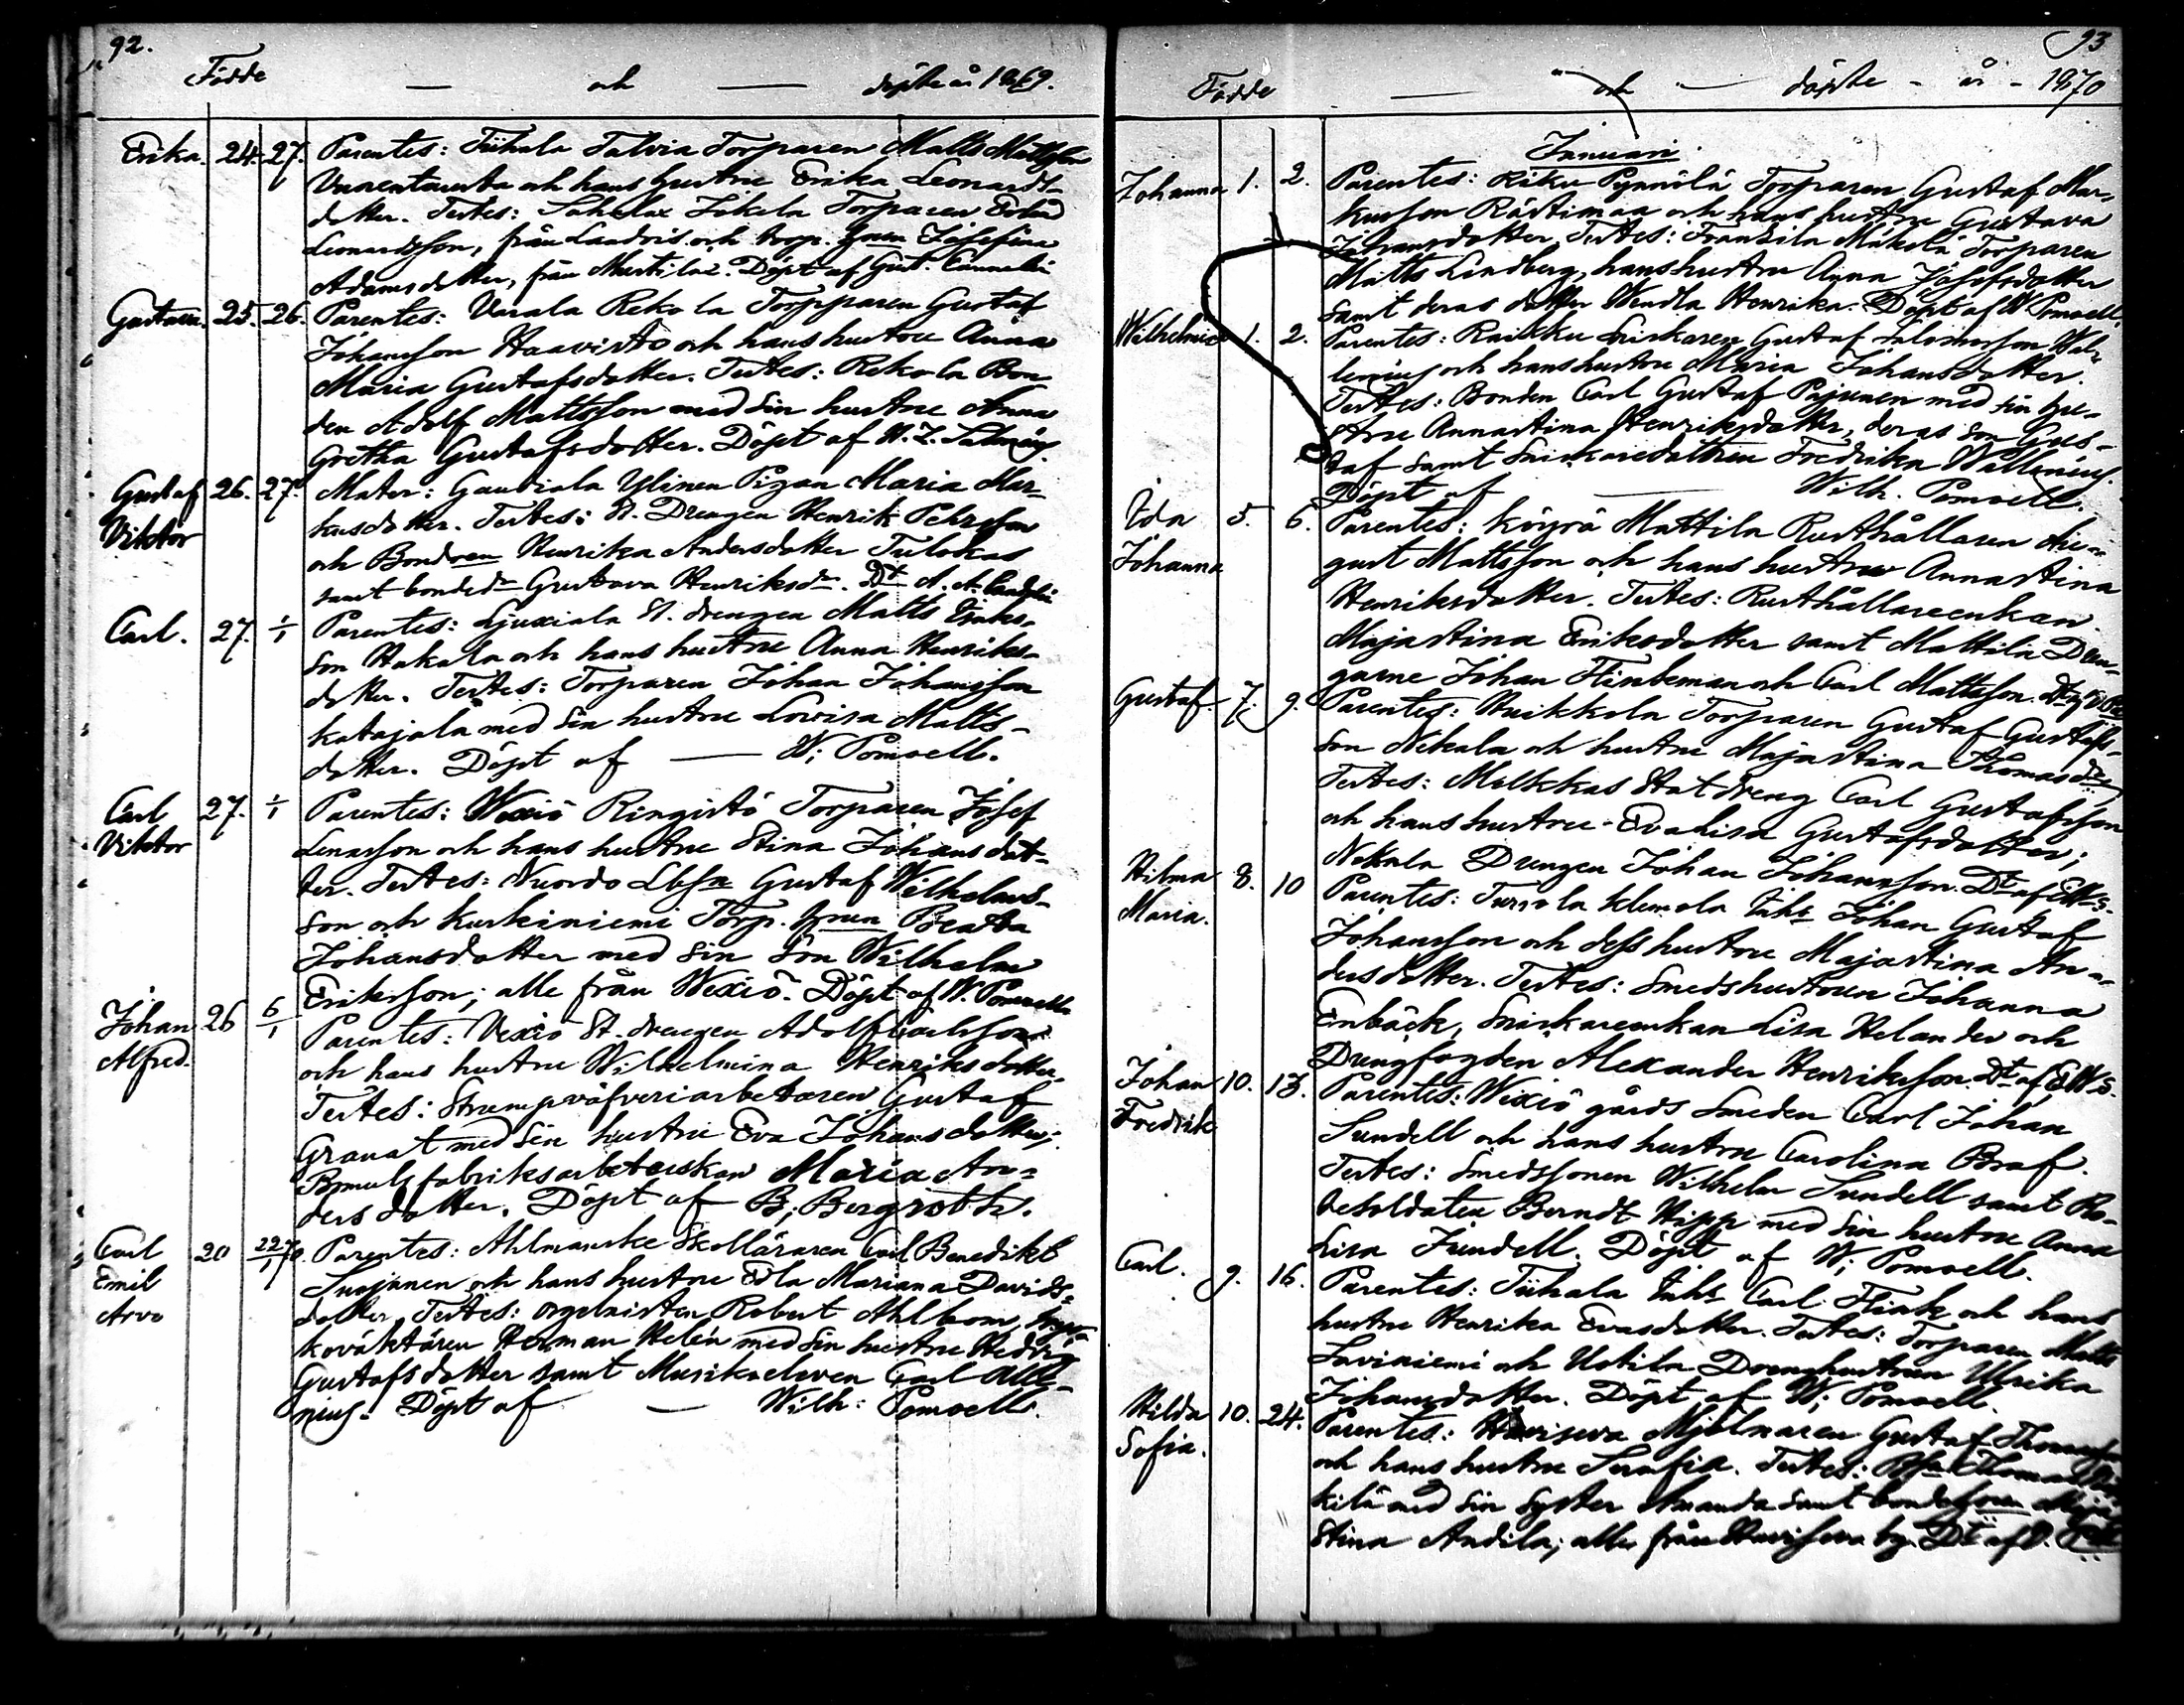 92.
Födde — och — döpte år 1869.
Erika. 24. 27. Parentes: Tiihala Talvia Torparen Matts Mattsson
Vuorentausta och hans hustru Erika Leonards-
dotter. Testes: Jokela Torparen
Leonardsson, från och torp. hrun Josefina
Adamsdotter, från Mustila. Döpt af Gust. Cannelin
Gustava. 25. 26. Parentes: Varala Rekola Torpparen Gustaf
Johansson Haavisto och hans hustru Anna
Maria Gustafsdotter. Testes: Rekola Bon
den Adolf Mattsson med sin hustru Anna
Gretha Gustafsdotter. Döpt af
Gustaf 26. 27. Mater: Ylinen Pigan Maria Mar-
Viktor kusdotter. Testes: St. Drengen Henrik Pehrsson
och Henrika Andersdotter Tulokas
samt bondedr Gustava Henriksdr. Dt A. A.
Carl. 27. 1/1 Parentes: Liuxiala St. drengen Matts Isaks-
son Hakala och hans hustru Anna Henriks-
dotter. Testes: Torparen Johan Johansson
Katajala med sin hustru Lovisa Matts-
dotter. Döpt af — W; Pomoell.
Carl 27. 1/1 Parentes: Wexiö Ringistö Torparen Josef
Viktor Lenasson och hans hustru Stina Johansdot-
ter. Testes: Nuordo Gustaf Wilhelms-
son och Kurkiniemi Torp. hrun Beata
Johansdotter med sin son Wilhelm
Eriksson; alle från Wexiö. Döpt af W. Pomoell
Johan 26 6/1 Parentes: Vexiö St. drengen Adolf Carlsson
Alfred. och hans hustru Wilhelmina Henriksdotter.
Testes: Strumpväfveriarbetaren Gustaf
Granat med sin hustru Eva Johansdotter;
Bomulsfabriksarbeterskan Maria An-
dersdotter. Döpt af B; Bergroth.
Carl 20 22/1 70. Parentes: Ahlmanske Skolläraren Carl Benedikt
Emil Suojanen och hans hustru Edla Mariana Davids-
Arvo dotter. Testes: orgelnisten Robert Ahlbom,
koväktaren Herman Helén med sin hustru Hedvig
Gustafsdotter samt Musikeleven Carl Alle-
nius. Döpt af — Wilh: Pomoell.
93
Födde — och — döpte - år - 1870
Januari.
Johanna 1. 2. Parentes: Riiku Pynnölä Torparen Gustaf Mar-
kusson Rästimaa och hans hustru Gustava
Johansdotter. Testes: Fransila Mäkelä Torparen
Matts Lindberg, hans hustru Anna Josefsdotter
samt deras dotter Wendla Henrika. Döpt af W Pomoell.
Wilhelmina 1. 2. Parentes: Raikku Snickaren Gustaf Salomonsson Wal-
lenius och hans hustru Maria Johansdotter.
Testes: Bonden Carl Gustaf Pajunen med sin hu-
stru Annastina Henriksdotter, deras son Gus-
taf samt Snickaredottren Fredrika Wallenius.
Döpt af — Wilh. Pomoell.
Ida 5. 6. Parentes: Köyrä Mattila Rusthållaren Au-
Johanna gust Mattsson och hans hustru Annastina
Henriksdotter. Testes: Rusthållareenkan
Majastina Eriksdotter samt Mattila Dren-
garne Johan Flinkeman och Carl Mattsson.
Gustaf. 7. 9. Parentes: Huikkola Torparen Gustaf Gustafs-
son Nekala och hustru Majastina Thomasdr
Testes: Malkkas Statdreng Carl Gustafsson
och hans hustru Evalisa Gustafsdotter;
Nekala Drengen Johan Johansson. Dt af
Hilma 8. 10 Parentes: Tursola Klemola Inhs Johan Gustaf
Maria. Johansson och dess hustru Majastina An-
dersdotter. Testes: Smedshustrun Johanna
Enbäck, Snickareenkan Lisa Helander och
Drengfogden Alexander Henriksson. Dt af
Johan 10. 13. Parentes: Wexiö gårds Smeden Carl Johan
Fredrik Sundell och hans hustru Carolina Braf.
Testes: Smedssonen Wilhelm Sundell samt Ro-
tesoldaten Berndt Hipp med sin hustru Anna
Lisa Sundell. Döpt af W; Pomoell.
Carl. 9. 16. Parentes: Tiihala Inhs Carl Flink och hans
hustru Henrika Evasdotter. Testes: Torparen Matts
Saviniemi och Uotila Drenghustrun Ulrika
Johansdotter. Döpt af W; Pomoell.
Hilda 10. 24. Parentes: Haviseva Mjölnaren Gustaf Thomasson
Sofia. och hans hustru Serafia. Testes: Thomas
kilä med sin syster Amanda samt Maja
Stina Andila; alle från by. Dt af